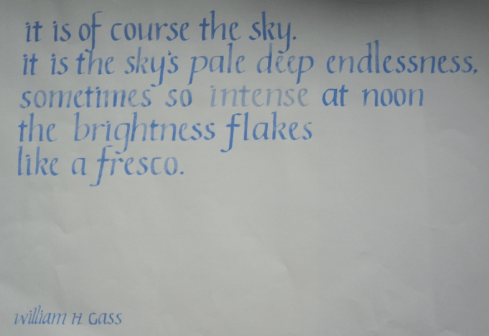 it is of course the sky.
it is the sky's pale deep endlessness.
sometimes so intense at noon
the brightness flakes
like a fresco.
William H. Gass